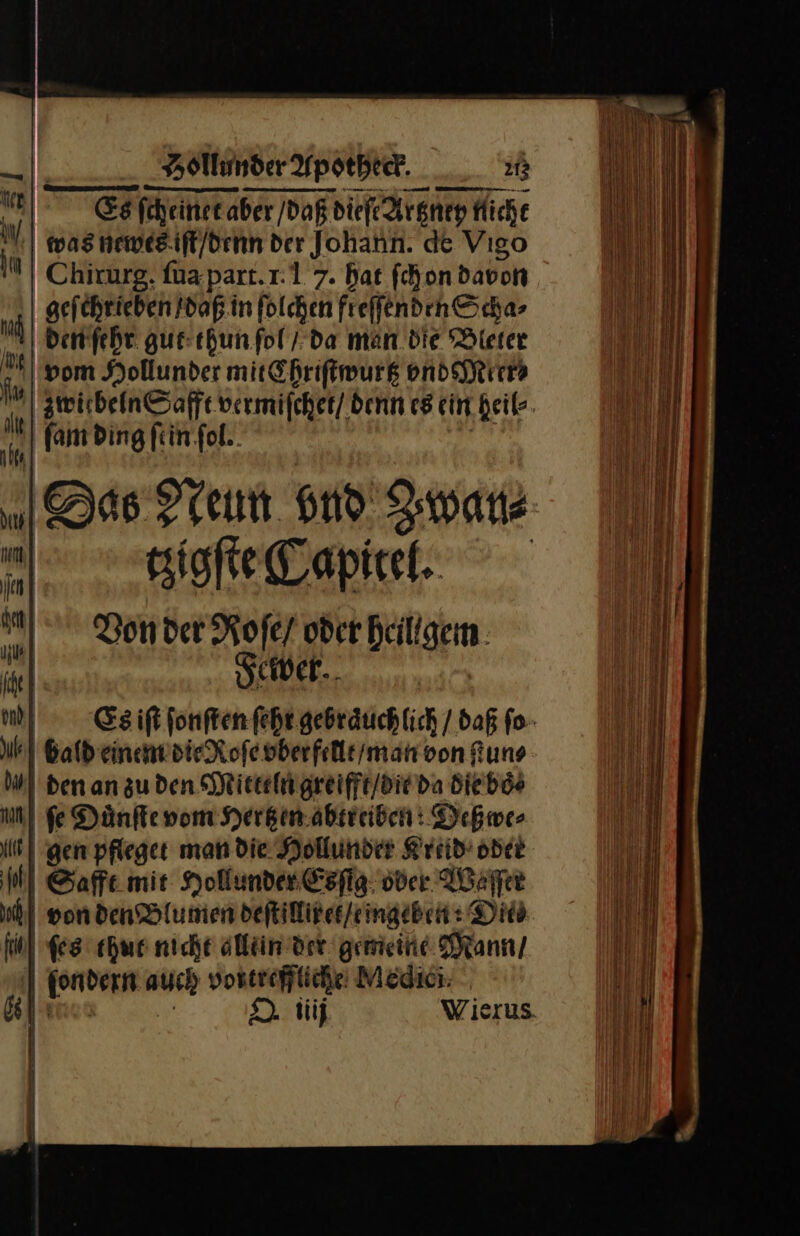 Hollunder Apotheck. 213
Es ſcheinet aber / daß dieſe Artzney nicht
was newes iſt / denn der Johann. de Vigo
Chirurg. ſua part. 1. l 7. hat ſchon davon
geſchrieben / daß in ſolchen freſſenden Scha⸗
den ſehr gut thun ſol / da man die Bleter
vom Hollunder mit Chriſtwurtz vnd Meer⸗
zwiebeln Safft vermiſchet / denn es ein heil⸗
ſam ding ſein ſol.
Das Neun vnd Zwan⸗
tzigſte Capitel.
Von der Roſe / oder heiligem
Fewer.
Es iſt ſonſten ſehr gebräuchlich / daß ſo
bald einem die Roſe vberfellt / man von ſtun⸗
den an zu den Mitteln greifft / die da die bö⸗
ſe Dünſte vom Hertzen abtreiben: Deßwe⸗
gen pfleget man die Hollunder Kreid oder
Safft mit Hollunder Eſſig oder Waſſer
von den Blumen deſtilliret / eingeben: Die⸗
ſes thut nicht allein der gemeine Mann /
ſondern auch vortreffliche Medici.
O iiij Wierus